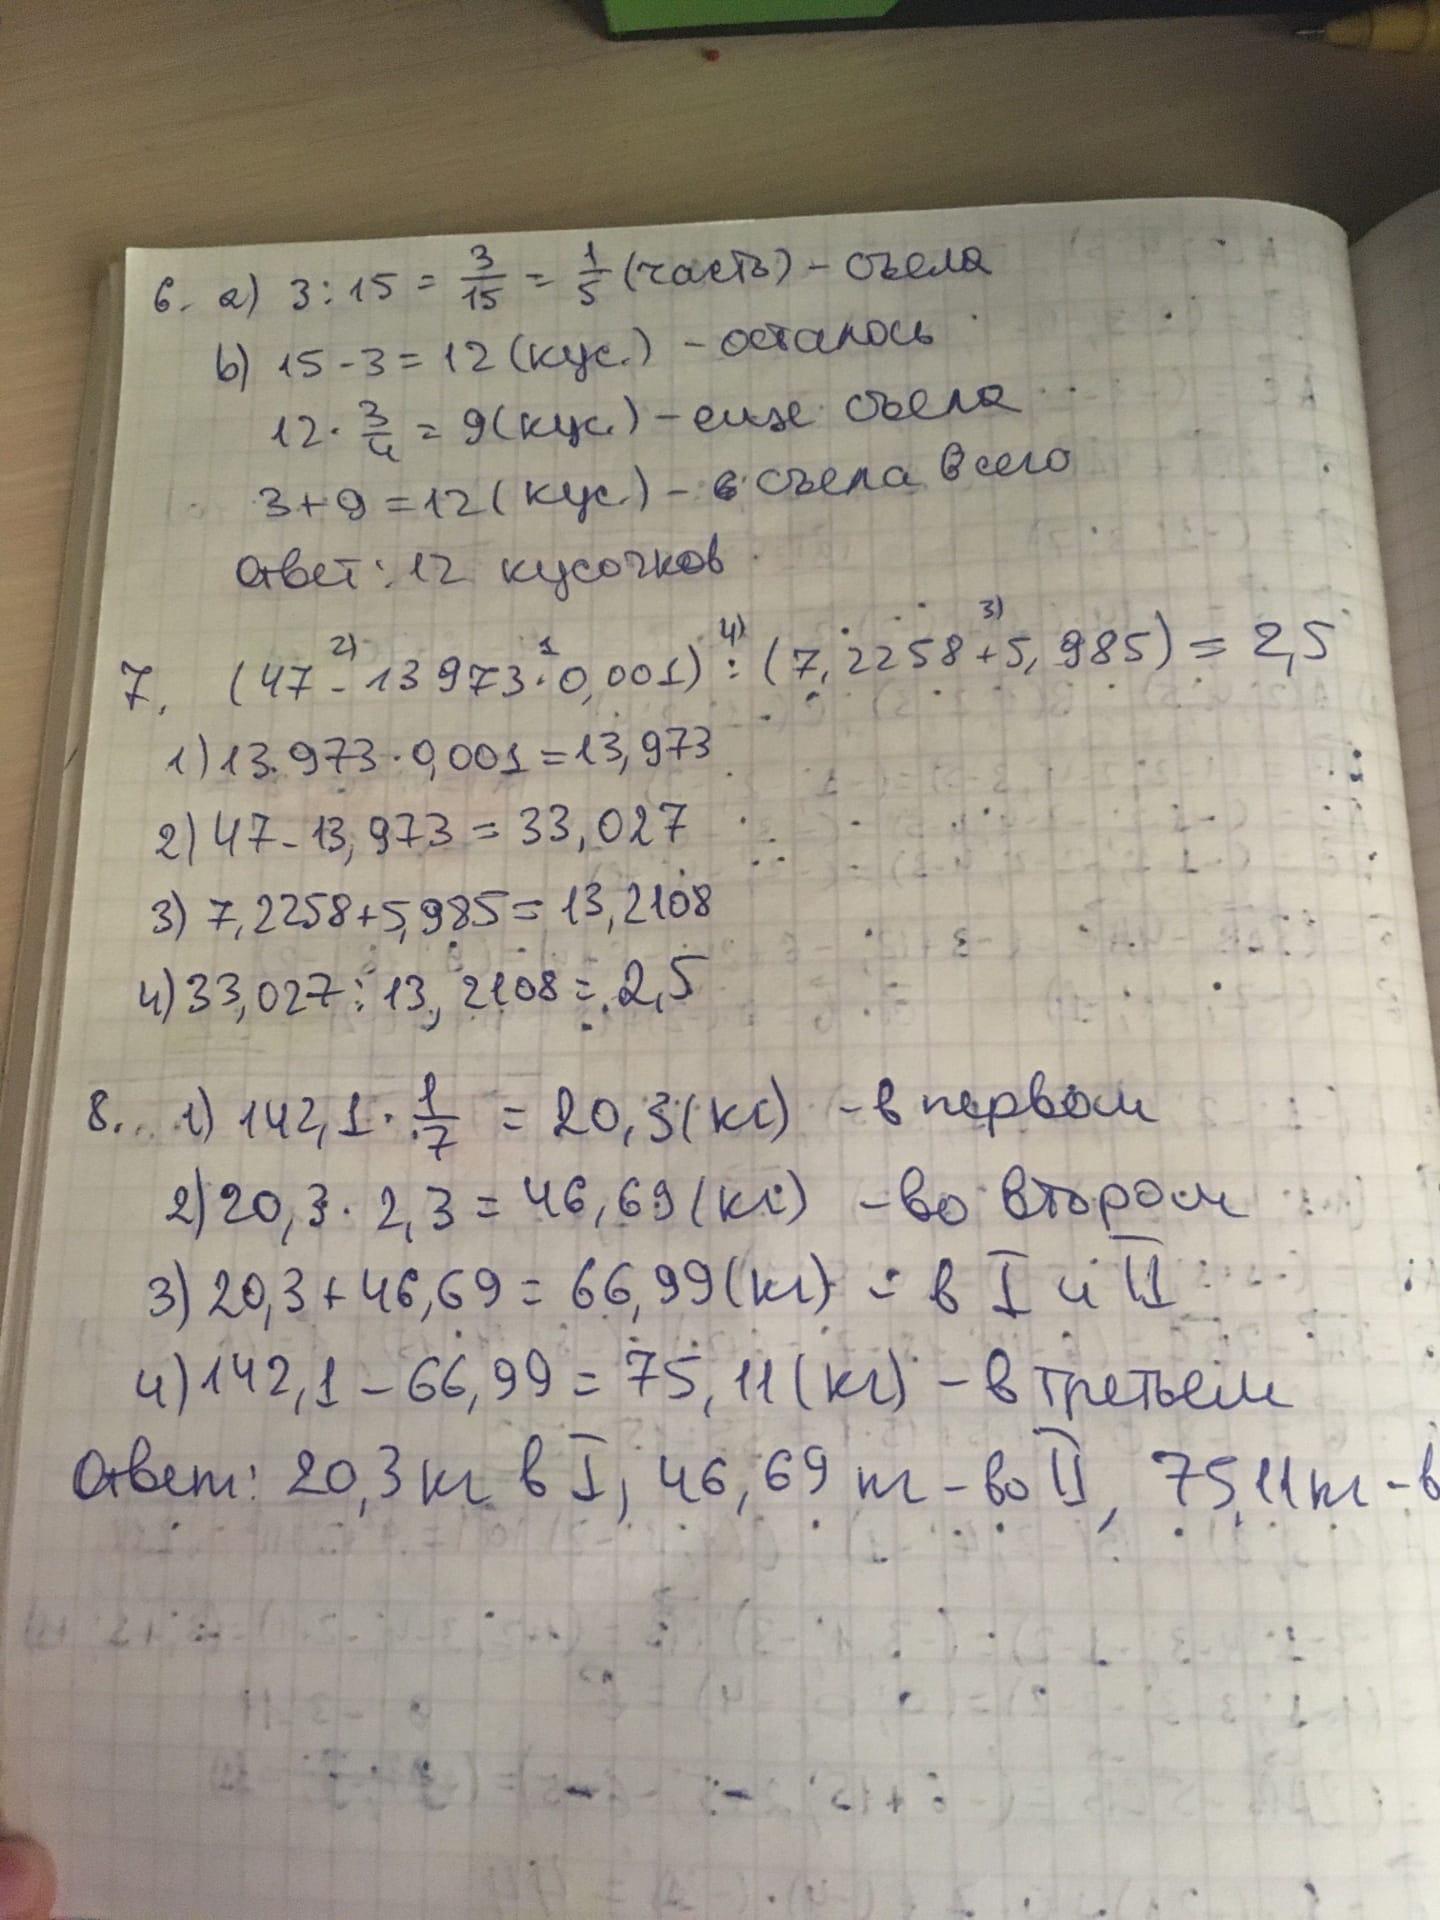 6. а) 3:15 = 3/15 = 1/5 (часть) - съела
b) 15-3=12 (кус.) - осталось
12·3/4 = 9(кус.) - еще съела
3+9=12(кус.) - съела всего
Ответ: 12 кусочков
2) 1 4) 3)
7. (47-13973·0,001):(7,2258+5,985)=2,5
1) 13.973·0,001=13,973
2) 47-13,973=33,027
3) 7,2258+5,985=13,2108
4) 33,027:13,2108=2,5
8. 1) 142,1·1/7 = 20,3(кг) - в первом
2) 20,3·2,3=46,69(кг) - во втором
3) 20,3+46,69=66,99(кг) - в I и II
4) 142,1-66,99=75,11(кг) - в третьем
Ответ: 20,3кг в I, 46,69 кг - во II, 75,11кг - в